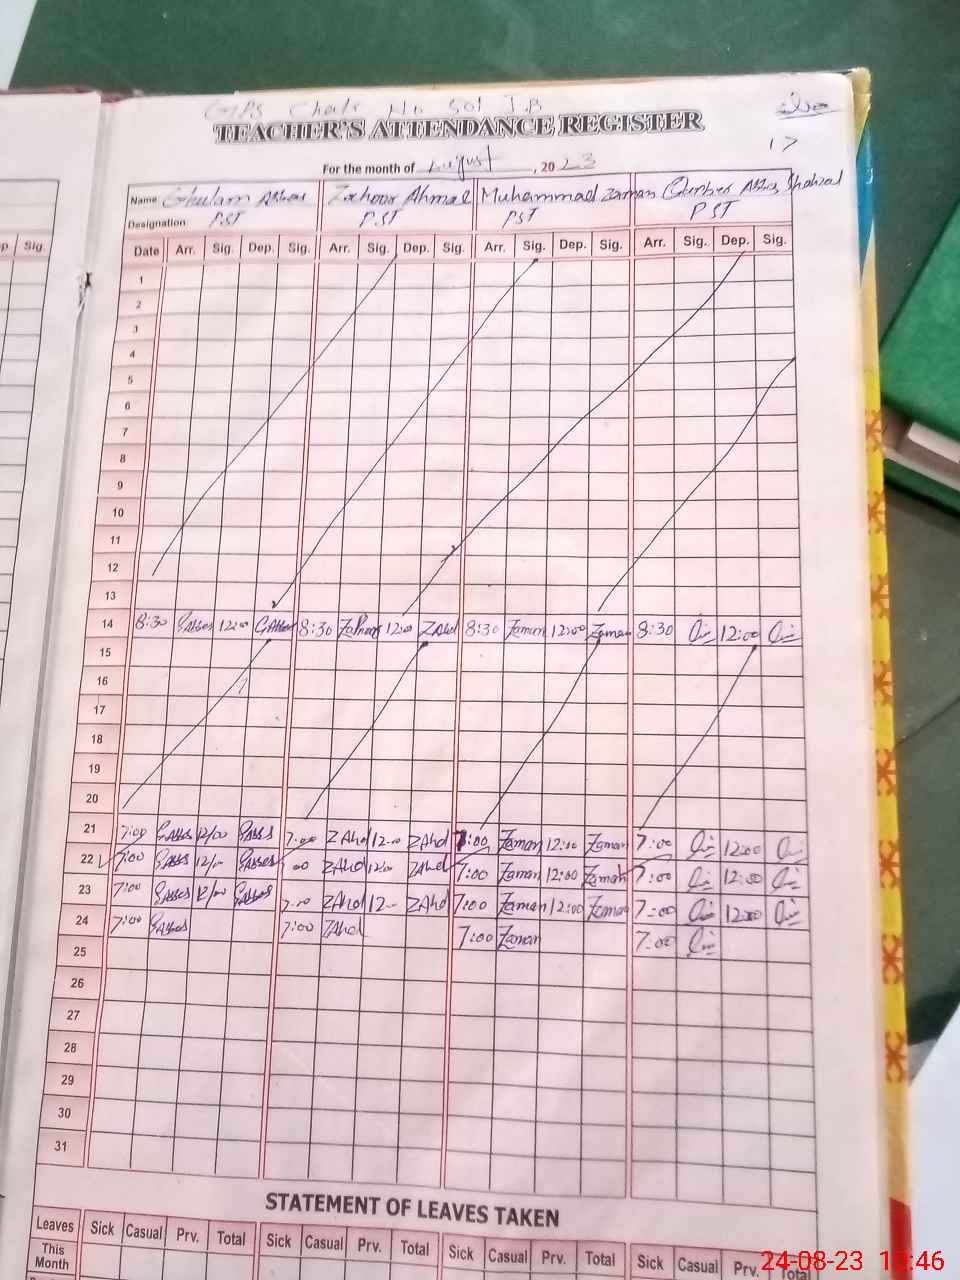 GPS Chak No 501 J.B
TEACHER'S ATTENDANCE REGISTER
17
For the month of August, 2023
Name Ghulam Abbas Zahoor Ahmad Muhammad Zaman Qanber Abbas Shahzad
Designation PST PST PST PST
p. Sig.
Date Arr. Sig. Dep. Sig. Arr. Sig. Dep. Sig. Arr. Sig. Dep. Sig. Arr. Sig. Dep. Sig.
1
2
3
4
5
6
7
8
9
10
11
12
13
14 8:30 12:00 8:30 12:00 ZAhd 8:30 Zaman 12:00 Zaman 8:30 12:00
15
16
17
18
19
20
21 7:00 12/00 7:00 ZAhd 12:00 ZAhd 7:00 Zaman 12:00 Zaman 7:00 12:00
22 7:00 12/00 :00 ZAhd 12:00 ZAhd 7:00 Zaman 12:00 Zaman 7:00 12:00
23 7:00 12/00 7:00 ZAhd 12:- ZAhd 7:00 Zaman 12:00 Zaman 7:00 12:00
24 7:00 7:00 ZAhd 7:00 Zaman 7:00
25
26
27
28
29
30
31
STATEMENT OF LEAVES TAKEN
Leaves Sick Casual Prv. Total Sick Casual Prv. Total Sick Casual Prv. Total Sick Casual Prv. Total
This Month
24-08-23 :46